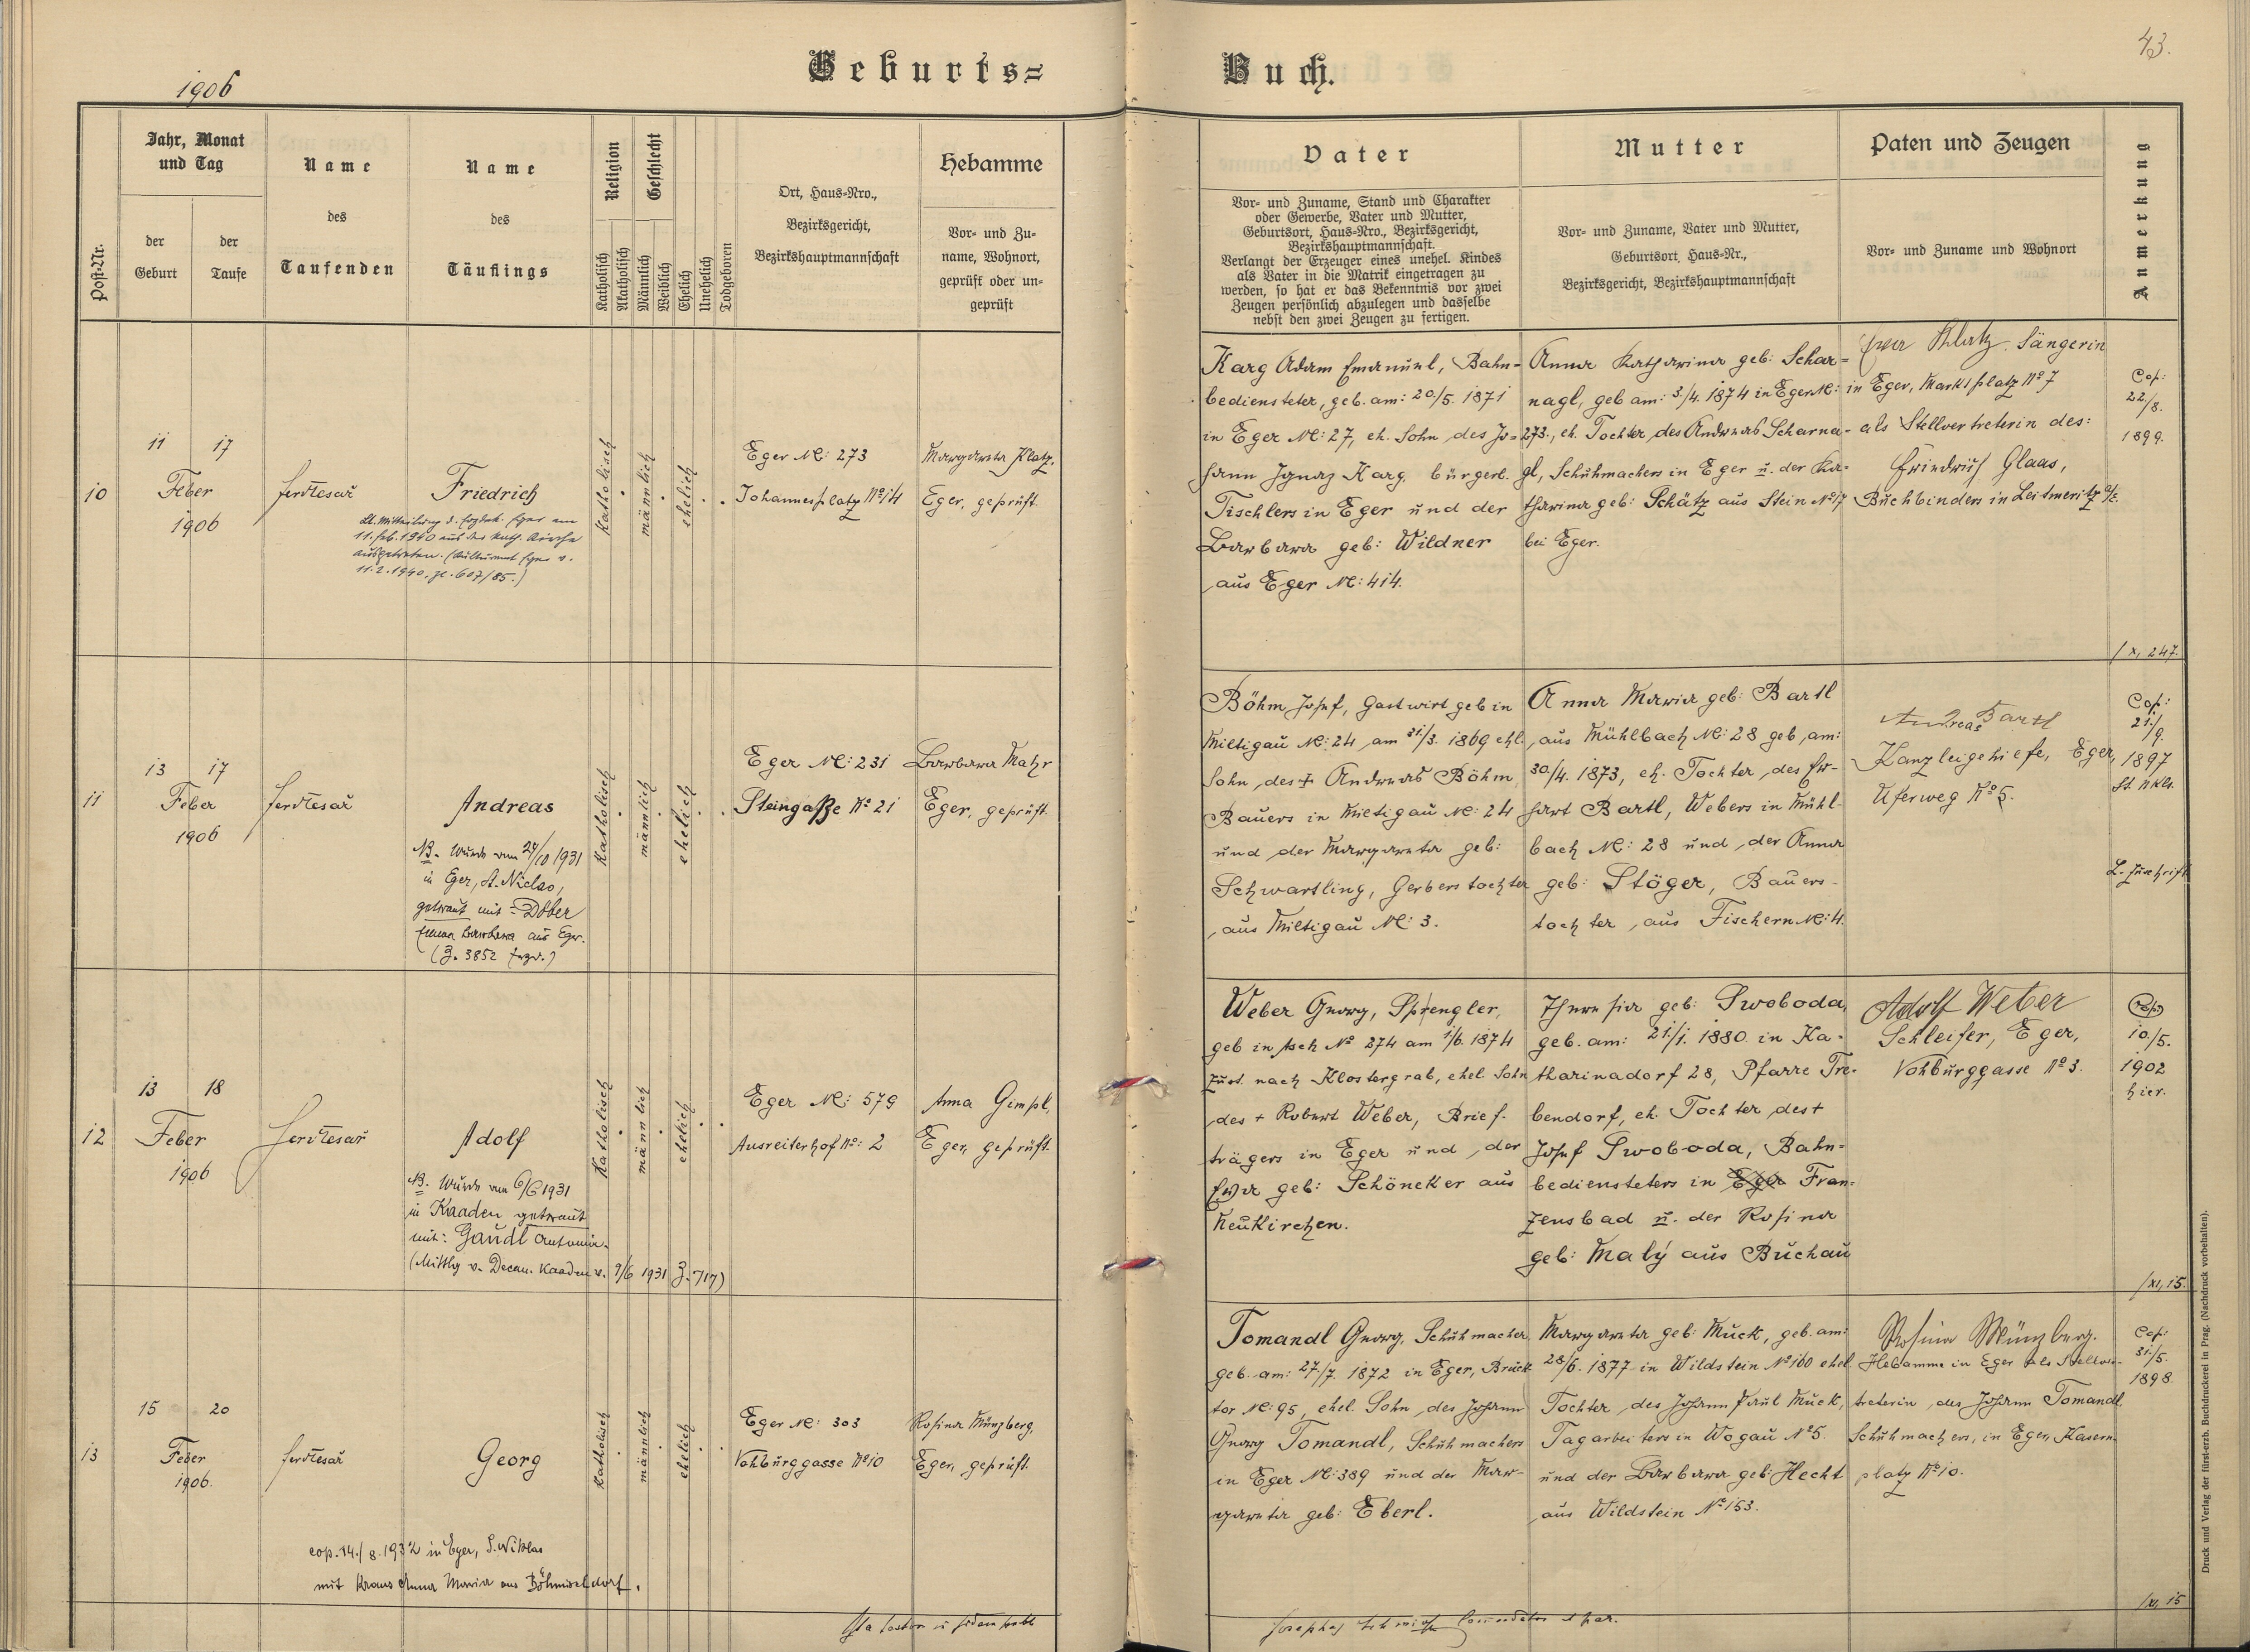 1906
Geburts=
Buch.
43.
Post-Nr.
Jahr, Monat
und Tag
der
Geburt
der
Taufe
Name
des
Taufenden
Name
des
Täuflings
Religion
Katholisch
Akatholisch
Geschlecht
Männlich
Weiblich
Ehelich
Unehelich
Todgeboren
Ort, Haus-Nro.,
Bezirksgericht,
Bezirkshauptmannschaft
Hebamme
Vor- und Zu-
name, Wohnort,
geprüft oder un-
geprüft
Vater
Vor- und Zuname, Stand und Charakter
oder Gewerbe, Vater und Mutter,
Geburtsort, Haus-Nro., Bezirksgericht,
Bezirkshauptmannschaft.
Verlangt der Erzeuger eines unehel. Kindes
als Vater in die Matrik eingetragen zu
werden, so hat er das Bekenntnis vor zwei
Zeugen persönlich abzulegen und dasselbe
nebst den zwei Zeugen zu fertigen.
Mutter
Vor- und Zuname, Vater und Mutter,
Geburtsort, Haus-Nr.,
Bezirksgericht, Bezirkshauptmannschaft
Paten und Zeugen
Vor- und Zuname und Wohnort
Anmerkung
10
11 17
Feber
1906
Friedrich
11. Feb. 1940 aus der kath. Kirche
ausgetreten.
11.2.1940. Zl. 607/85.)
Katholisch
männlich
ehelich
Eger NC: 273
Johannesplatz No 14
Margareta Platz,
Eger, geprüft.
Karg Adam Emanuel, Bahn-
bediensteter, geb. am: 20/5. 1871
in Eger NC: 27, eh. Sohn des Jo-
hann Ignaz Karg, bürgerl.
Tischlers in Eger und der
Barbara geb: Wildner
aus Eger NC: 414.
Anna Katharina geb: Schar-
nagl, geb am: 3/4. 1874 in Eger NC:
273., eh. Tochter des Andreas Scharna-
gl, Schuhmachers in Eger u. der Ka-
tharina geb: Schätz aus Stein No 17
bei Eger.
Sängerin
in Eger, Marktplatz No 7
als Stellvertreterin des:
Friedrich Glaas,
Buchbinders in Leitmeritz a/E.
Cop:
22/8.
1899.
/X, 247.
11
13 17
Feber
1906
Andreas
NB. Wurde am 24/10 1931
in Eger, St. Niclas,
getraut mit: Döber
Emma Barbara aus Eger.
(Z. 3852
Katholisch
männlich
ehelich
Eger NC: 231
Steingaße No 21
Barbara Mahr
Eger, geprüft.
Böhm Josef, Gastwirt geb in
Miltigau NC: 24 am 31/3. 1869 ehl.
Sohn des + Andreas Böhm
Bauers in Miltigau NC: 24
und der Margareta geb:
Schwartling, Gerberstochter
aus Miltigau NC: 3.
Anna Maria geb: Bartl
aus Mühlbach NC: 28 geb am:
30/4. 1873, eh. Tochter des Er-
hart Bartl, Webers in Mühl-
bach NC: 28 und der Anna
geb: Stöger, Bauers-
tochter aus Fischern NC: 4.
Andreas Bartl
Kanzleigehilfe, Eger,
Uferweg No 5.
Cop:
21/9.
1897
St. Nkls.
12
13 18
Feber
1906
Adolf
NB. Wurde am 6/6 1931
in Kaaden getraut
mit: Gaudl Antonia.
(Mittlg v. Decan. Kaaden v. 7/6 1931 Z. 717)
Katholisch
männlich
ehelich
Eger NC: 579
Ausreiterhof No: 2
Anna Gimpl,
Eger, geprüft.
Weber Georg, Sprengler,
geb in Asch No 274 am 1/6. 1874
zust. nach Klostergrab, ehel. Sohn
des + Robert Weber, Brief-
trägers in Eger und der
Eva geb: Schöneker aus
Neukirchen.
Theresia geb: Swoboda,
geb. am: 21/1. 1880 in Ka-
tharinadorf 28, Pfarre Tre-
bendorf, eh. Tochter des +
Josef Swoboda, Bahn-
bediensteters in Eger Fran-
zensbad u. der Rosina
geb: Malý aus Buchau
Adolf Weber
Schleifer, Eger,
Vohburggasse No 3.
Cop:
10/5.
1902
hier.
/XI, 15.
13
15 20
Feber
1906.
Georg
cop. 14./8. 1932 in Eger, S. Niklas
mit Kraus Anna Maria aus
Katholisch
männlich
ehelich
Eger NC: 303
Vohburggasse No 10
Rosina Münzberg,
Eger, geprüft.
Tomandl Georg, Schuhmacher
geb. am: 27/7. 1872 in Eger, Bruck-
tor NC: 95, ehel. Sohn des Johann
Georg Tomandl, Schuhmachers
in Eger NC: 389 und der Mar-
gareta geb: Eberl.
Margareta geb: Muck, geb. am:
28/6. 1877 in Wildstein No 160 ehel.
Tochter des Johann Paul Muck,
Tagarbeiters in Wogau No 5.
und der Barbara geb: Hecht
aus Wildstein No 153.
Rosina Münzberg.
Hebamme in Eger als Stellver-
treterin des Johann Tomandl
Schuhmachers, in Eger, Kasern-
platz No 10.
Cop:
31/5.
1898.
/XI, 15
Druck und Verlag der fürst-erzb. Buchdruckerei in Prag. (Nachdruck vorbehalten).